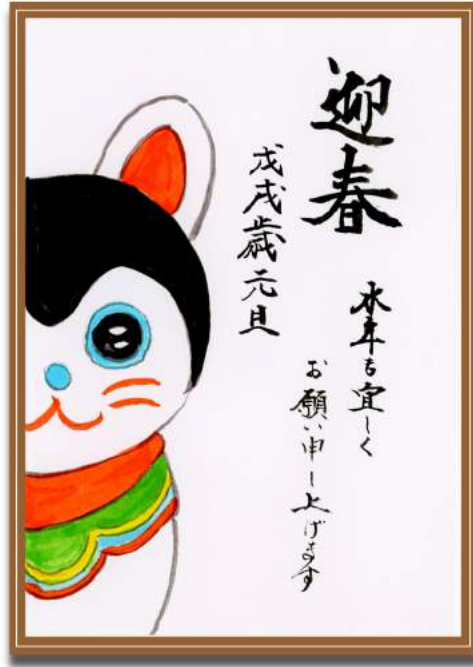 迎春
本年も宜しく
お願い申し上げます
戊戌歳元旦